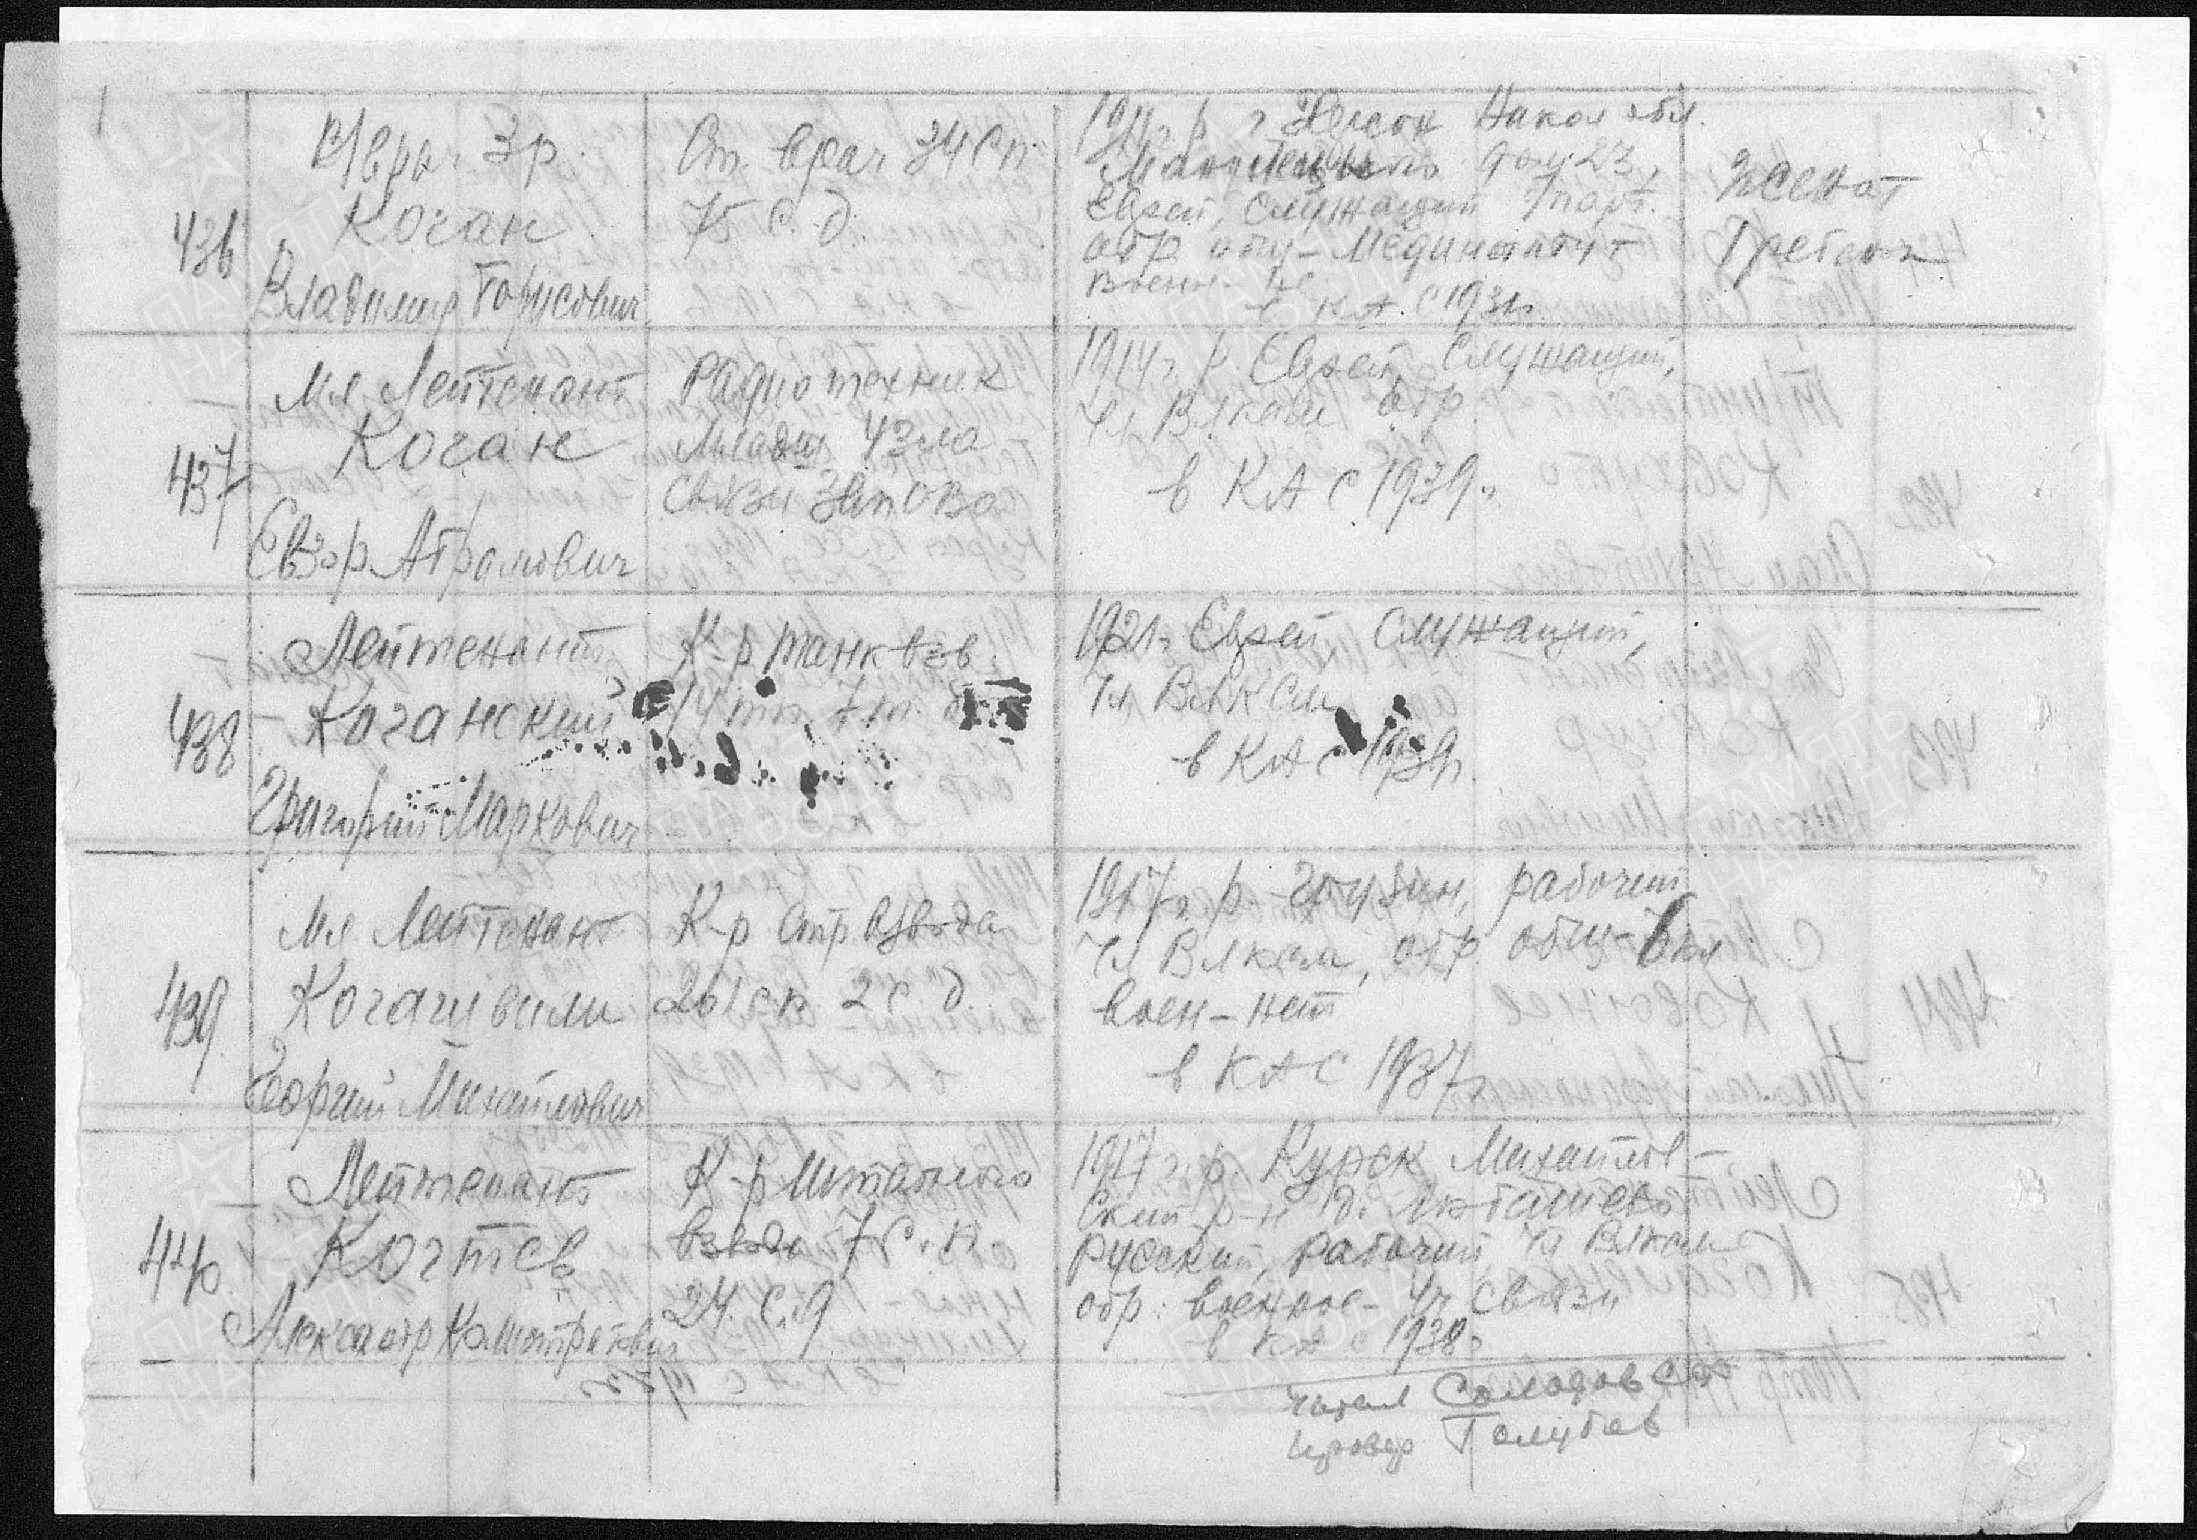 436
В/врач 3 р.
Коган
Владимир Борисович
Ст. врач 34 сп
75 с. д.
1911 г. р. г Херсон Никол обл.
дом 23,
Еврей, служащий
обр общ - Мединститут
военн -
в КА. с 1931г.
женат
437
Мл. Лейтенант
Коган
Евзор Абрамович
Радиотехник
Младш Узла
связи ЗапОВО
1914 г. р Еврей, служащий,
чл Влксм обр.
в КА с 1939г.
438
Лейтенант
Коганский
Григорий Маркович
К-р танк взв.
14 тп
1921г. Еврей, служащий,
чл ВЛКСМ
в КА с 1939г.
439
Мл Лейтенант
Когашвили
Георгий Михайлович
К-р Стр взвода
261 сп 2 с д.
1917 г. р. Грузин, рабочий
чл Влксм, обр. общ-6 кл
воен - нет
в КА с 1937г
440
Лейтенант
Когтев
Александр
К-р Штабного
взвода 7 с. п.
24. с. д
1917 г. р. Курск Михайлов-
ский р-н д.
русский, рабочий чл Влксм
обр: военное - уч. связи
в КА с 1938г
читал
провер Голубев